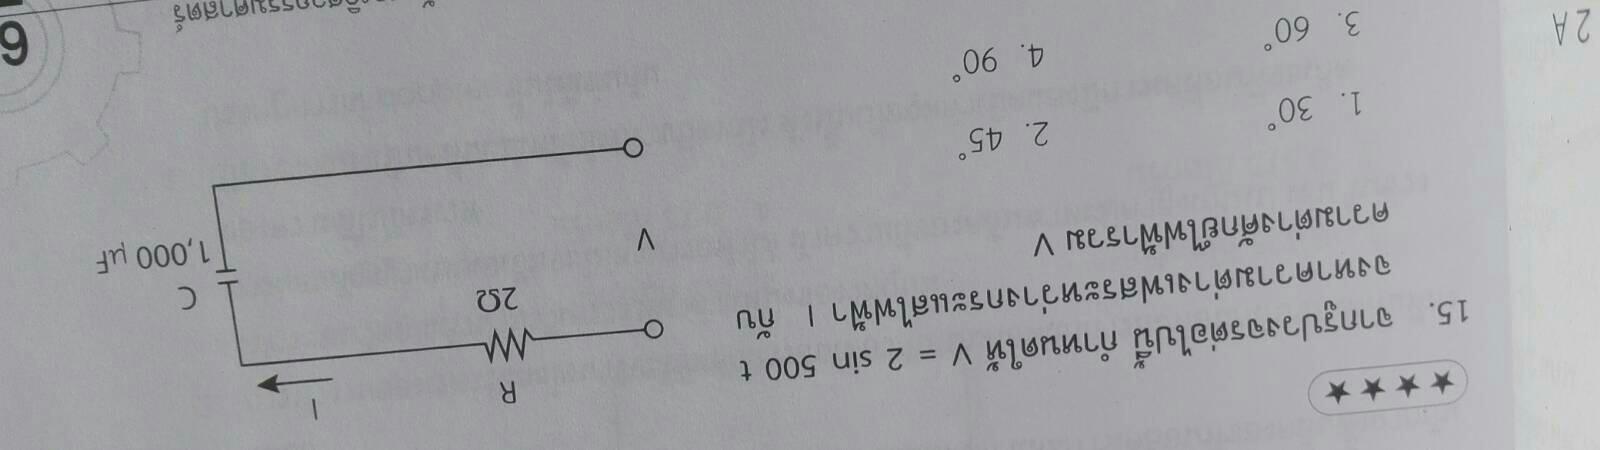 ★ ★ ★ ★
15. จากรูปวงจรต่อไปนี้ กำหนดให้ V = 2 sin 500 t
จงหาความต่างเฟสระหว่างกระแสไฟฟ้า I กับ
ความต่างศักย์ไฟฟ้ารวม V
1. 30°
2. 45°
3. 60°
4. 90°
I
R
2Ω
C
1,000 μF
V
2 A
6